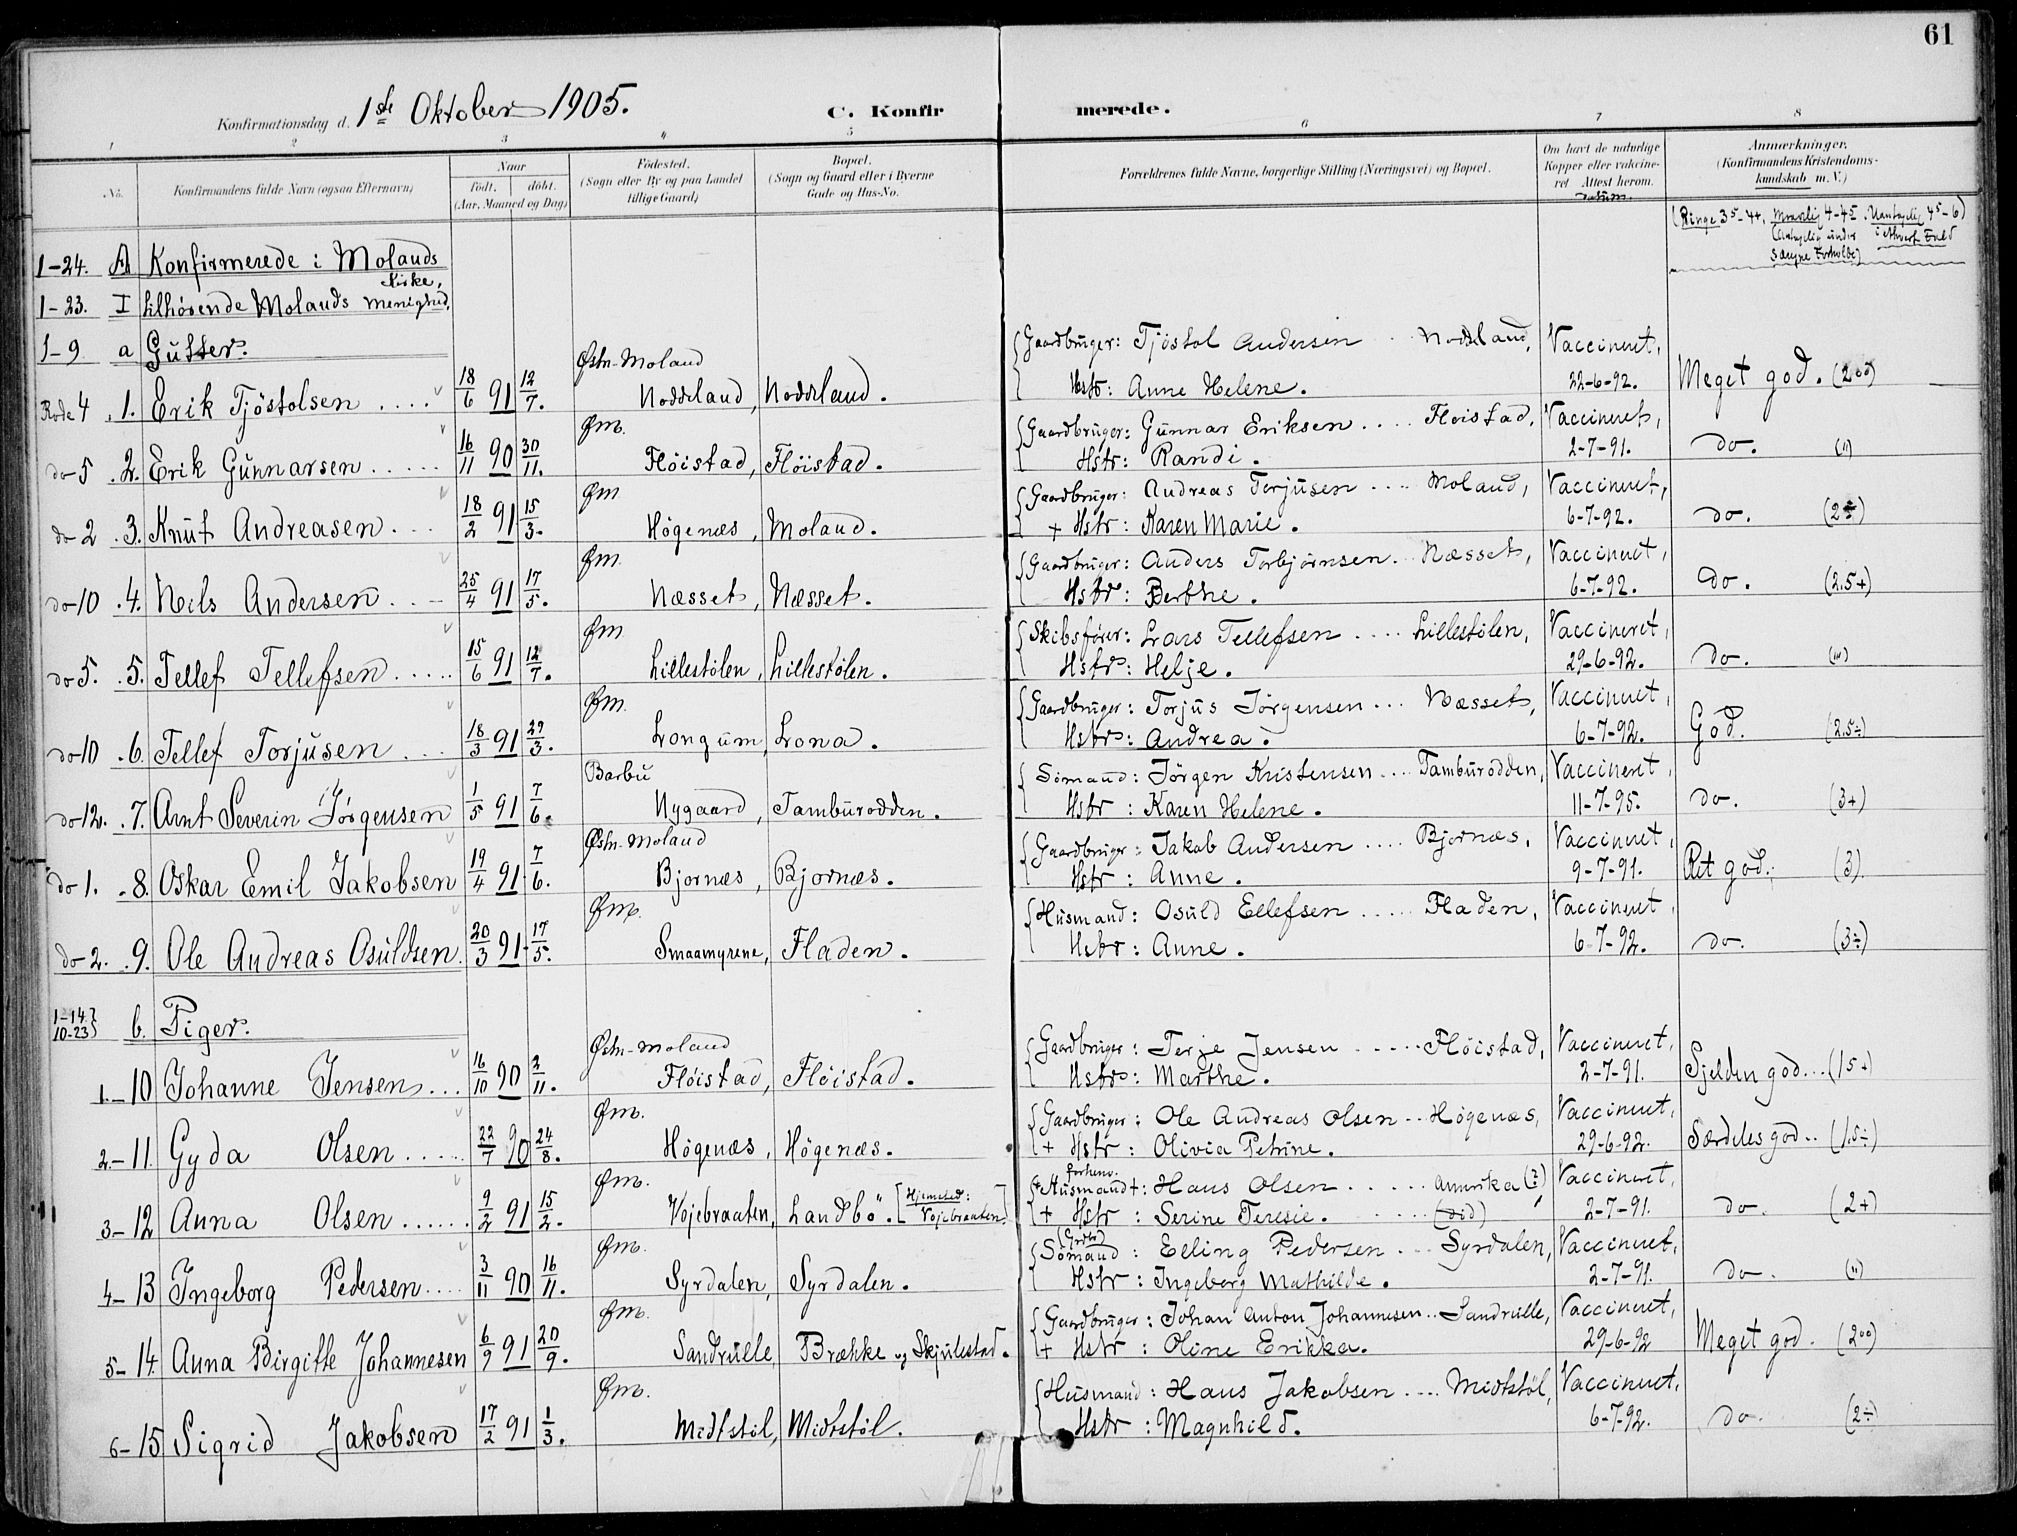 61
Konfirmationsdag d. 1ste Oktober 1905. C. Konfirmerede.
1 2 3 4 5 6 7 8
No. Konfirmandens fulde Navn (ogsaa Efternavn) Naar født. døbt. (Aar, Maaned og Dag) Fødested. (Sogn eller By og paa Landet tillige Gaard) Bopæl. (Sogn og Gaard eller i Byerne Gade og Hus-No. Forældrenes fulde Navne, borgerlige Stilling (Næringsvei) og Bopæl. Om havt de naturlige Kopper eller vaccineret Attest herom. Datum. Anmærkninger. (Konfirmandens Kristendomskundskab m. V.)
1-24. A Konfirmerede i Molands Kirke,
1-23. I tilhørende Molands menighed.
1-9 a Gutter.
Rode 4 . 1. Erik Tjöstolsen .... 18/6 91 12/7. Østn-Moland Noddeland, Noddeland. Gaardbruger: Tjöstol Andersen .. Noddeland, Hstr: Anne Helene. Vaccineret, 22-6-92. Meget god. (200)
do 5 . 2. Erik Gunnarsen ..... 16/11 90 30/11. Øm. Flöistad, Flöistad. Gaardbruger: Gunnar Eriksen .... Floistad, Hstr: Randi. Vaccineret, 2-7-91. do. (")
do 2 . 3. Knut Andreasen ... 18/2 91 15/3. Øm Högenæs, Moland. Gaardbruger: Andreas Terjusen .... Moland, + Hstr: Karen Marie. Vaccineret, 6-7-92. do. (2÷)
do 10 . 4. Nils Andersen ... 25/4 91 17/5. Øm. Næsset, Næsset. Gaardbruger: Anders Torbjørnsen .. Næsset, Hstr: Berthe. Vaccineret, 6-7-92. do. (2.5+)
do 5. . 5. Tellef Tellefsen ..... 15/6 91 12/7. Øm Lillestölen, Lillestölen. Skibsfører: Lars Tellefsen .... Lillestölen, Hstr: Helje. Vaccineret, 29-6-92. do. (")
do 10 . 6. Tellef Torjusen ... 18/3 91 29/3. Øm. Longum, Lona. Gaardbruger: Torjus Jörgensen ... Næsset, Hstr: Andrea. Vaccineret, 6-7-92. God. (2.5÷)
do 12. . 7. Arnt Severin Jörgensen 1/5 91 7/6. Barbu Nygaard, Tamburodden. Sömand: Jörgen Kristensen .... Tamburodden, Hstr: Karen Helene. Vaccineret, 11-7-95. do. (3+)
do 1. . 8. Oskar Emil Jakobsen 19/4 91 7/6. Østn-Moland Bjornæs, Bjornæs. Gaardbruger: Jakob Andersen .... Bjornæs, Hstr: Anne. Vaccineret, 9-7-91. Ret god. (3).
do 2. . 9. Ole Andreas Osuldsen. 20/3 91 17/5. Øm. Smaamyrene, Fladen. Husmand: Osuld Ellefsen ..... Fladen, Hstr: Anne. Vaccineret, 6-7-92. do. (3÷)
1-14 10-23 b. Piger.
1.-10 Johanne Jensen ... 16/10 90 2/11. Østn-Moland Flöistad, Flöistad. Gaardbruger: Terje Jensen ..... Flöistad, Hstr: Marthe. Vaccineret, 2-7-91. Sjelden god...(1 5+)
2.-11. Gyda Olsen ..... 22/7 90 24/8. Øm. Högenæs, Högenæs. Gaardbruger: Ole Andreas Olsen .. Högenæs, + Hstr: Olivia Petrine. Vaccineret, 29-6-92. Særdeles god.. (1.5÷)
3-12 Anna Olsen ...... 9/2 91 15/2. Øm. Vojebraaten, Landbö. [Hjemsted: Vojebraaten] forhenv. Husmand +: Hans Olsen ..... Amerika (?) + Hstr: Serine Teresie. (did) Vaccineret, 2-7-91. do. (2+)
4-13 Ingeborg Pedersen .... 3/11 90 16/11. Øm. Syrdalen, Syrdalen. Sömand: Elling Pedersen ... Syrdalen, Hstr: Ingeborg Mathilde. Vaccineret, 2-7-91. do. (")
5-14. Anna Birgitte Johannesen 6/9 91 20/9. Øm. Sandrulle, Brække og Skjulestad. Gaardbruger: Johan Anton Johannesen .. Sandrulle, + Hstr: Oline Erikka. Vaccineret, 29-6-92 Meget god. (200)
6-15 Sigrid Jakobsen 17/2 91 1/3. Øm. Midtstöl, Midtstöl. Husmand: Hans Jakobsen .... Midtstöl, Hstr: Magnhild. Vaccineret, 6-7-92. do. (2÷)